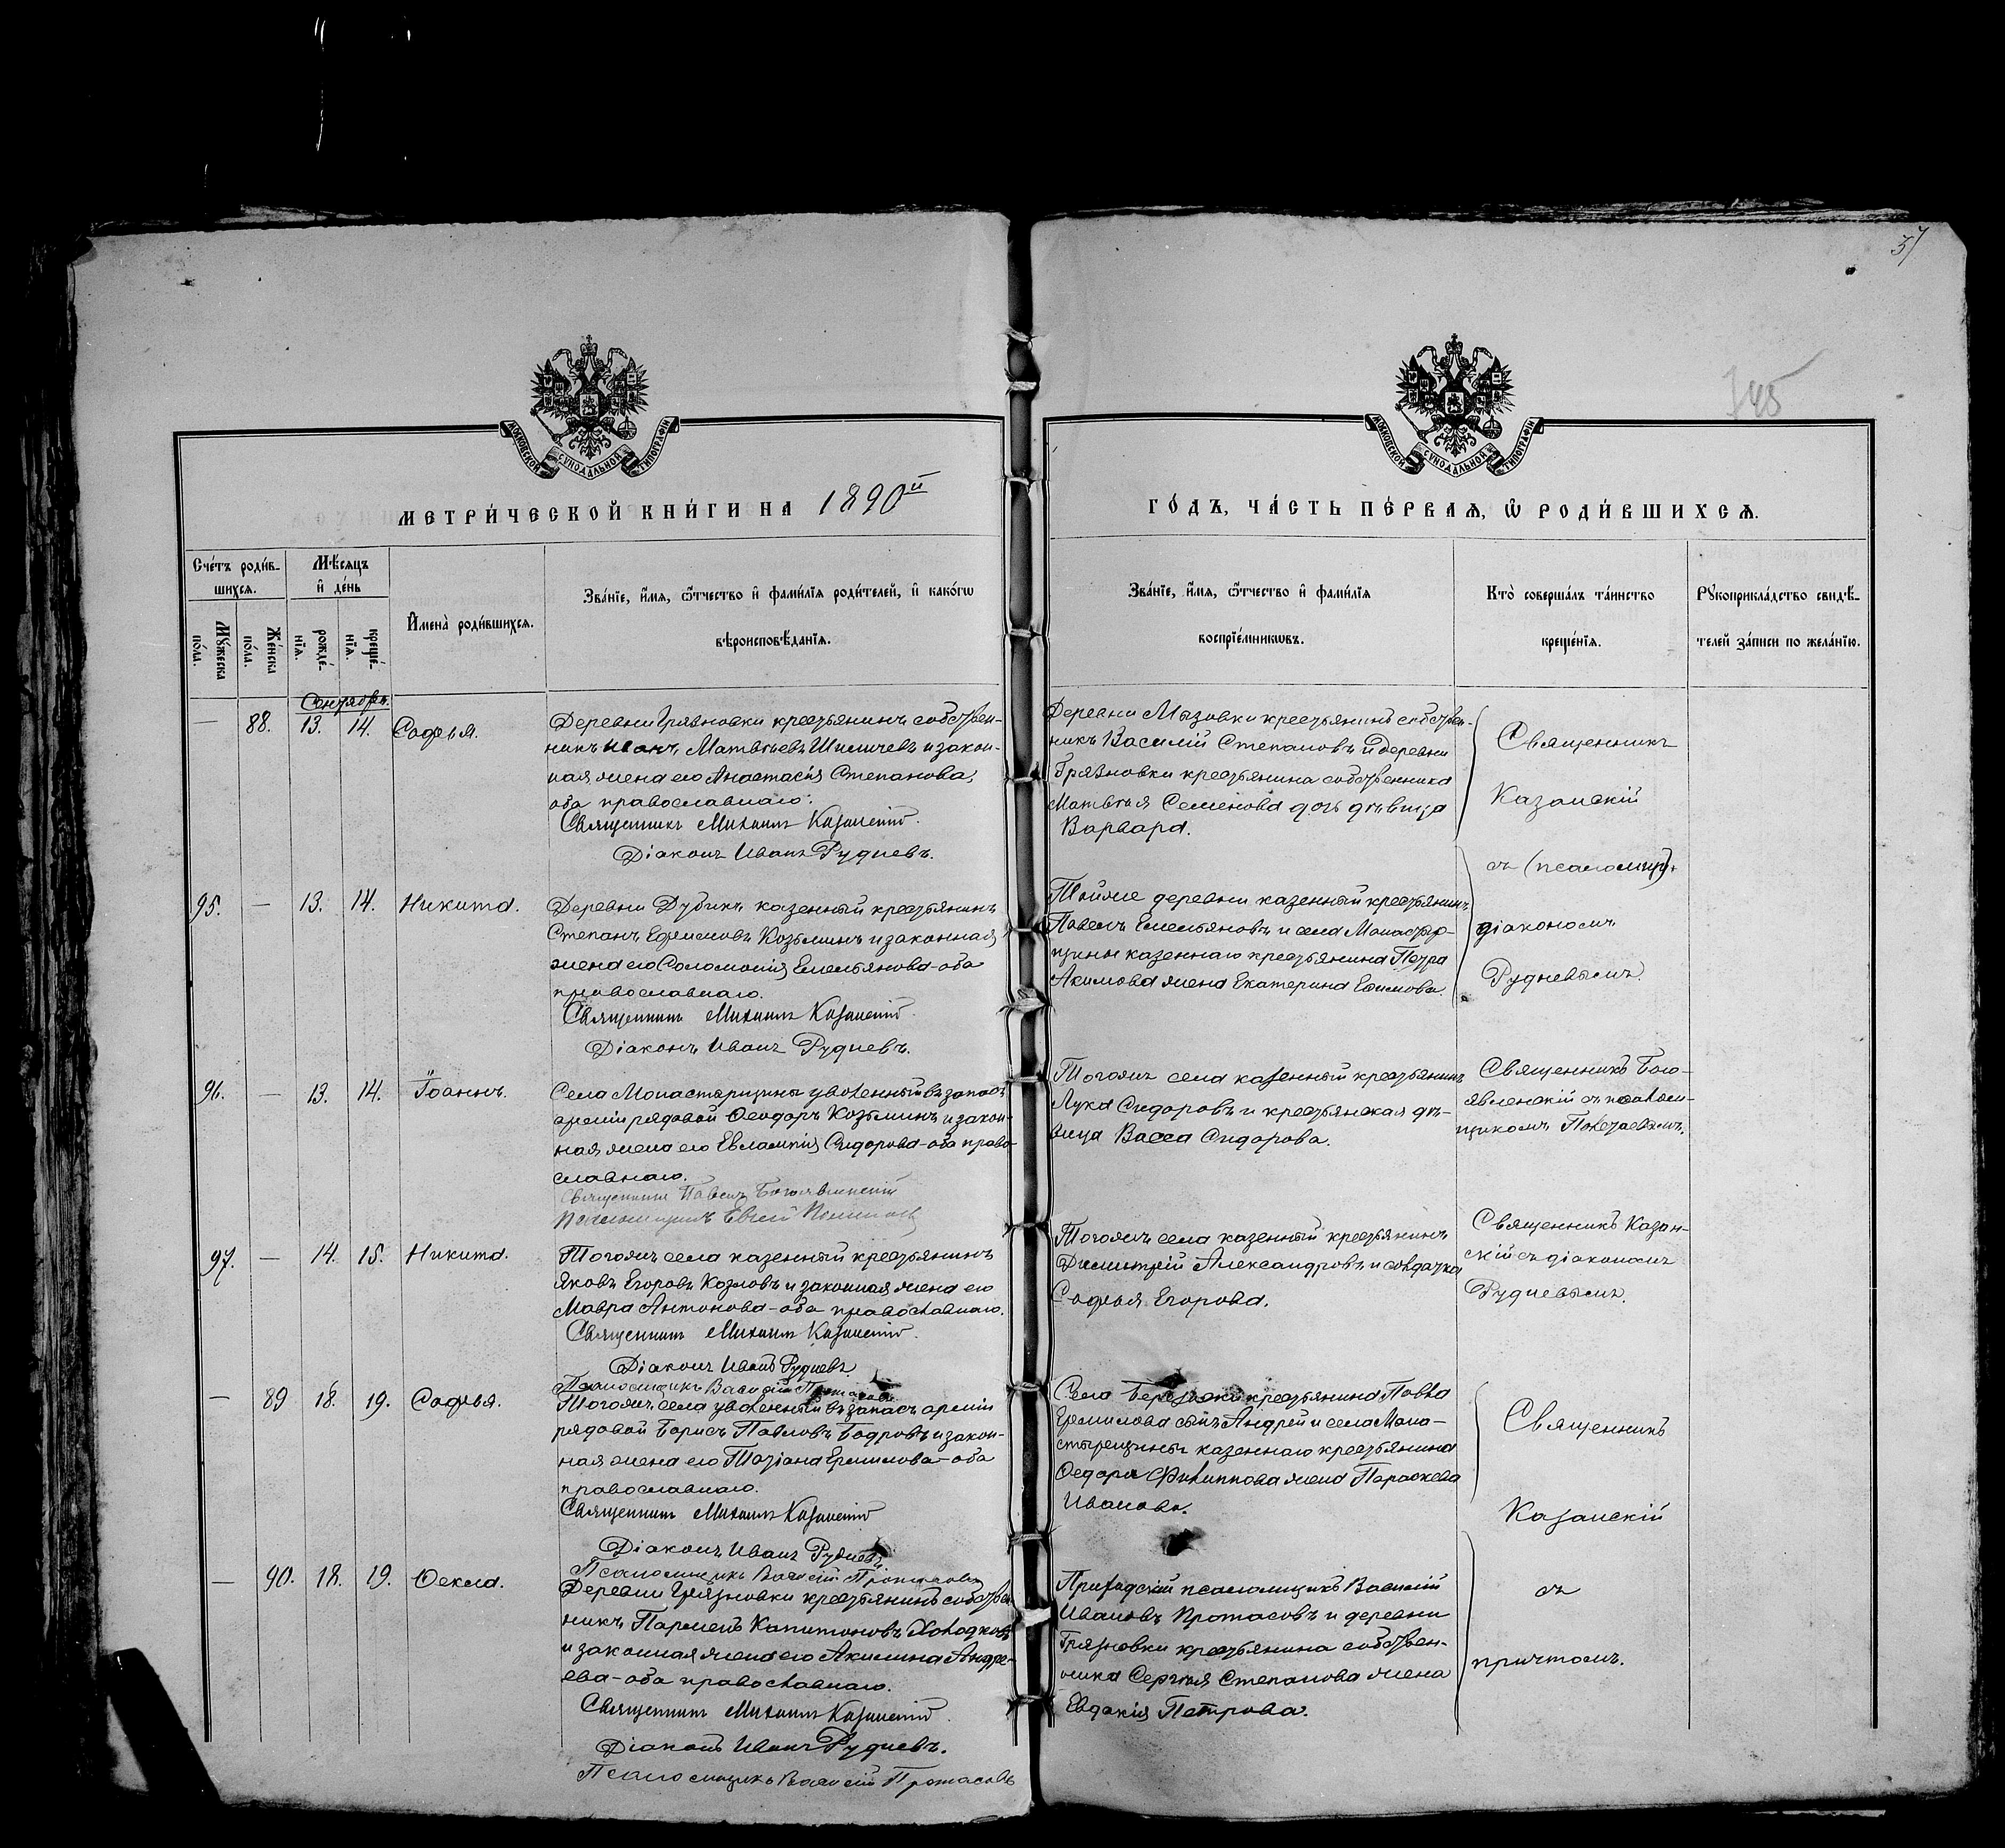 57
745
МОСКОВСКОЙ СѴНОДАЛЬНОЙ ТИПОГРАФІИ
МОСКОВСКОЙ СѴНОДАЛЬНОЙ ТИПОГРАФІИ
МЕТРИ́ЧЕСКОЙ КНИ́ГИ НА 1890й
ГО́ДЪ, ЧА́СТЬ ПЕ́РВАѦ, Ѡ РОДИ́ВШИХСѦ.
Сче́тъ роди́в-
шихсѧ.
Мꙋжеска по́ла.
Же́нска по́ла.
Мѣ́сѧцъ
и҆ де́нь
рожде́-
нїѧ.
креще́-
нїѧ.
И҆мена̀ роди́вшихсѧ.
Зва́нїе, и҆́мѧ, ѻ҆́тчество и҆ фами́лїѧ роди́телей, и҆ како́гѡ
вѣроисповѣ́данїѧ.
Зва́нїе, и҆́мѧ, ѻ҆́тчество и҆ фами́лїѧ
воспрїе́мникѡвъ.
Кто̀ соверша́лъ та́инство
креще́нїѧ.
Рꙋкоприкла́дство свидѣ́-
телей за́писи по жела́нїю.
Сентябрь.
— 88. 13. 14. Софья.
Деревни Грязновки крестьянинъ собствен-
никъ Иванъ Матвѣевъ Шишичевъ и закон-
ная жена его Анастасія Степанова,
оба православнаго.
Священникъ Михаилъ Казанскій.
Діаконъ Иванъ Рудневъ.
Деревни Мызовки крестьянинъ собствен-
никъ Василій Степановъ и деревни
Грязновки крестьянина собственника
Матвѣя Семенова дочь дѣвица
Варвара.
Священникъ
Казанскій
съ (псаломщ).
діакономъ
Рудневымъ.
95. — 13. 14. Никита.
Деревни Дубикъ казенный крестьянинъ
Степанъ Ефимовъ Козьминъ и законная
жена его Соломонія Емельянова - оба
православнаго.
Священникъ Михаилъ Казанскій.
Діаконъ Иванъ Рудневъ.
Тойже деревни казенный крестьянинъ
Павелъ Емельяновъ и села Монастыр-
щины казеннаго крестьянина Петра
Акимова жена Екатерина Ефимова.
96. — 13. 14. Іоаннъ.
Села Монастырщины уволенный въ запасъ
арміи рядовой Ѳеодоръ Козьминъ и закон-
ная жена его Евлампія Сидорова - оба право-
славнаго.
Священникъ Павелъ Богоявленскій
Тогожъ села казенный крестьянинъ
Лука Сидоровъ и крестьянская дѣ-
вица Васса Сидорова.
Священникъ Бого-
явленскій съ псалом-
щикомъ
97. — 14. 15. Никита.
Тогожъ села казенный крестьянинъ
Яковъ Егоровъ Козловъ и законная жена его
Мавра Антонова - оба православнаго.
Священникъ Михаилъ Казанскій.
Діаконъ Иванъ Рудневъ.
Псаломщикъ Василій Протасовъ
Тогожъ села казенный крестьянинъ
Димитрій Александровъ и солдатка
Софья Егорова.
Священникъ Казан-
скій съ діакономъ
Рудневымъ.
— 89 18. 19. Софья.
Тогожъ села уволенный въ запасъ арміи
рядовой Борисъ Павловъ Бодровъ и закон-
ная жена его Татіана Ермилова - оба
православнаго.
Священникъ Михаилъ Казанскій
Діаконъ Иванъ Рудневъ
Псаломщикъ Василій Протасовъ
Села крестьянина Павла
Ермилова сынъ Андрей и села Мона-
стырщины казеннаго крестьянина
Ѳедора Филиппова жена Параскева
Иванова.
Священникъ
Казанскій
съ
причтомъ.
— 90. 18. 19. Ѳекла.
Деревни Грязновки крестьянинъ собствен-
никъ Парменъ Капитоновъ Холодковъ
и законная жена его Акилина Андре-
ева - оба православнаго.
Священникъ Михаилъ Казанскій.
Діаконъ Иванъ Рудневъ.
Псаломщикъ Василій Протасовъ
Приходскій псаломщикъ Василій
Ивановъ Протасовъ и деревни
Грязновки крестьянина собствен-
ника Сергѣя Степанова жена
Евдокія Петрова.